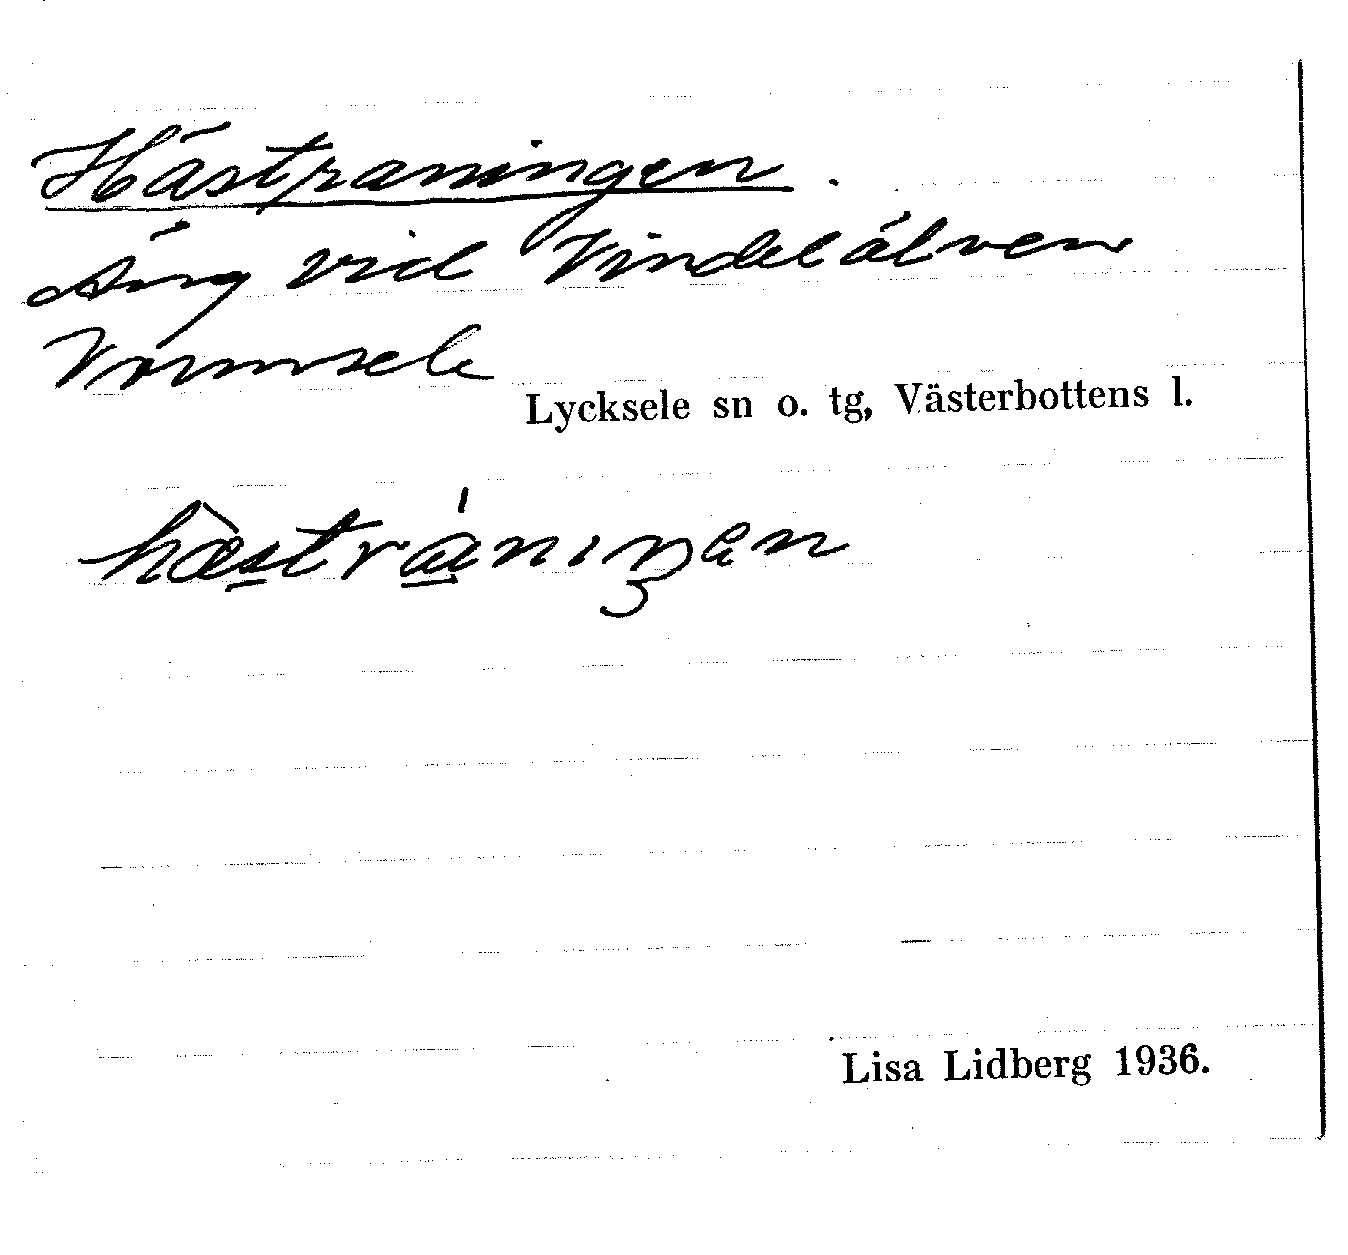 Hästraningen.
Äng vid Vindelälven
Vormsele
Lycksele sn o. tg, Västerbottens l.
hæ̀strániŋen
Lisa Lidberg 1936.